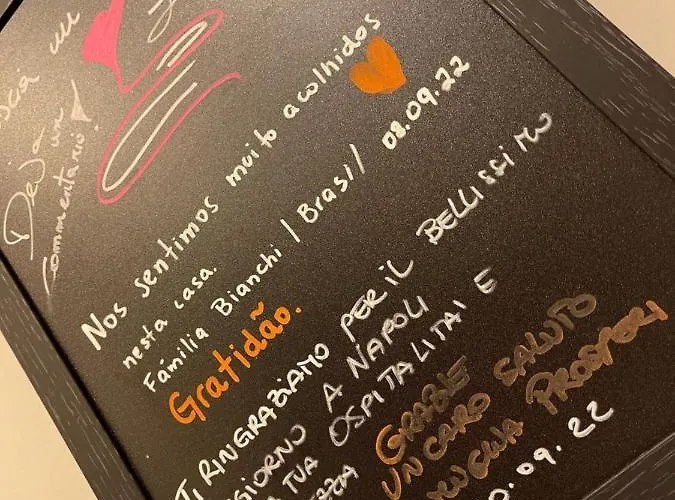 Deja
un
commentario!
Nos sentimos muito acolhidos
nesta casa.
Família Bianchi / Brasil 08.09.22
Gratidão.
TI RINGRAZIAMO PER IL BELLISSIMO
GIORNO A NAPOLI
TUA OSPITALITAI E
GRAZIE
UN CARO SALUTO
PROSPERI
0.09.22